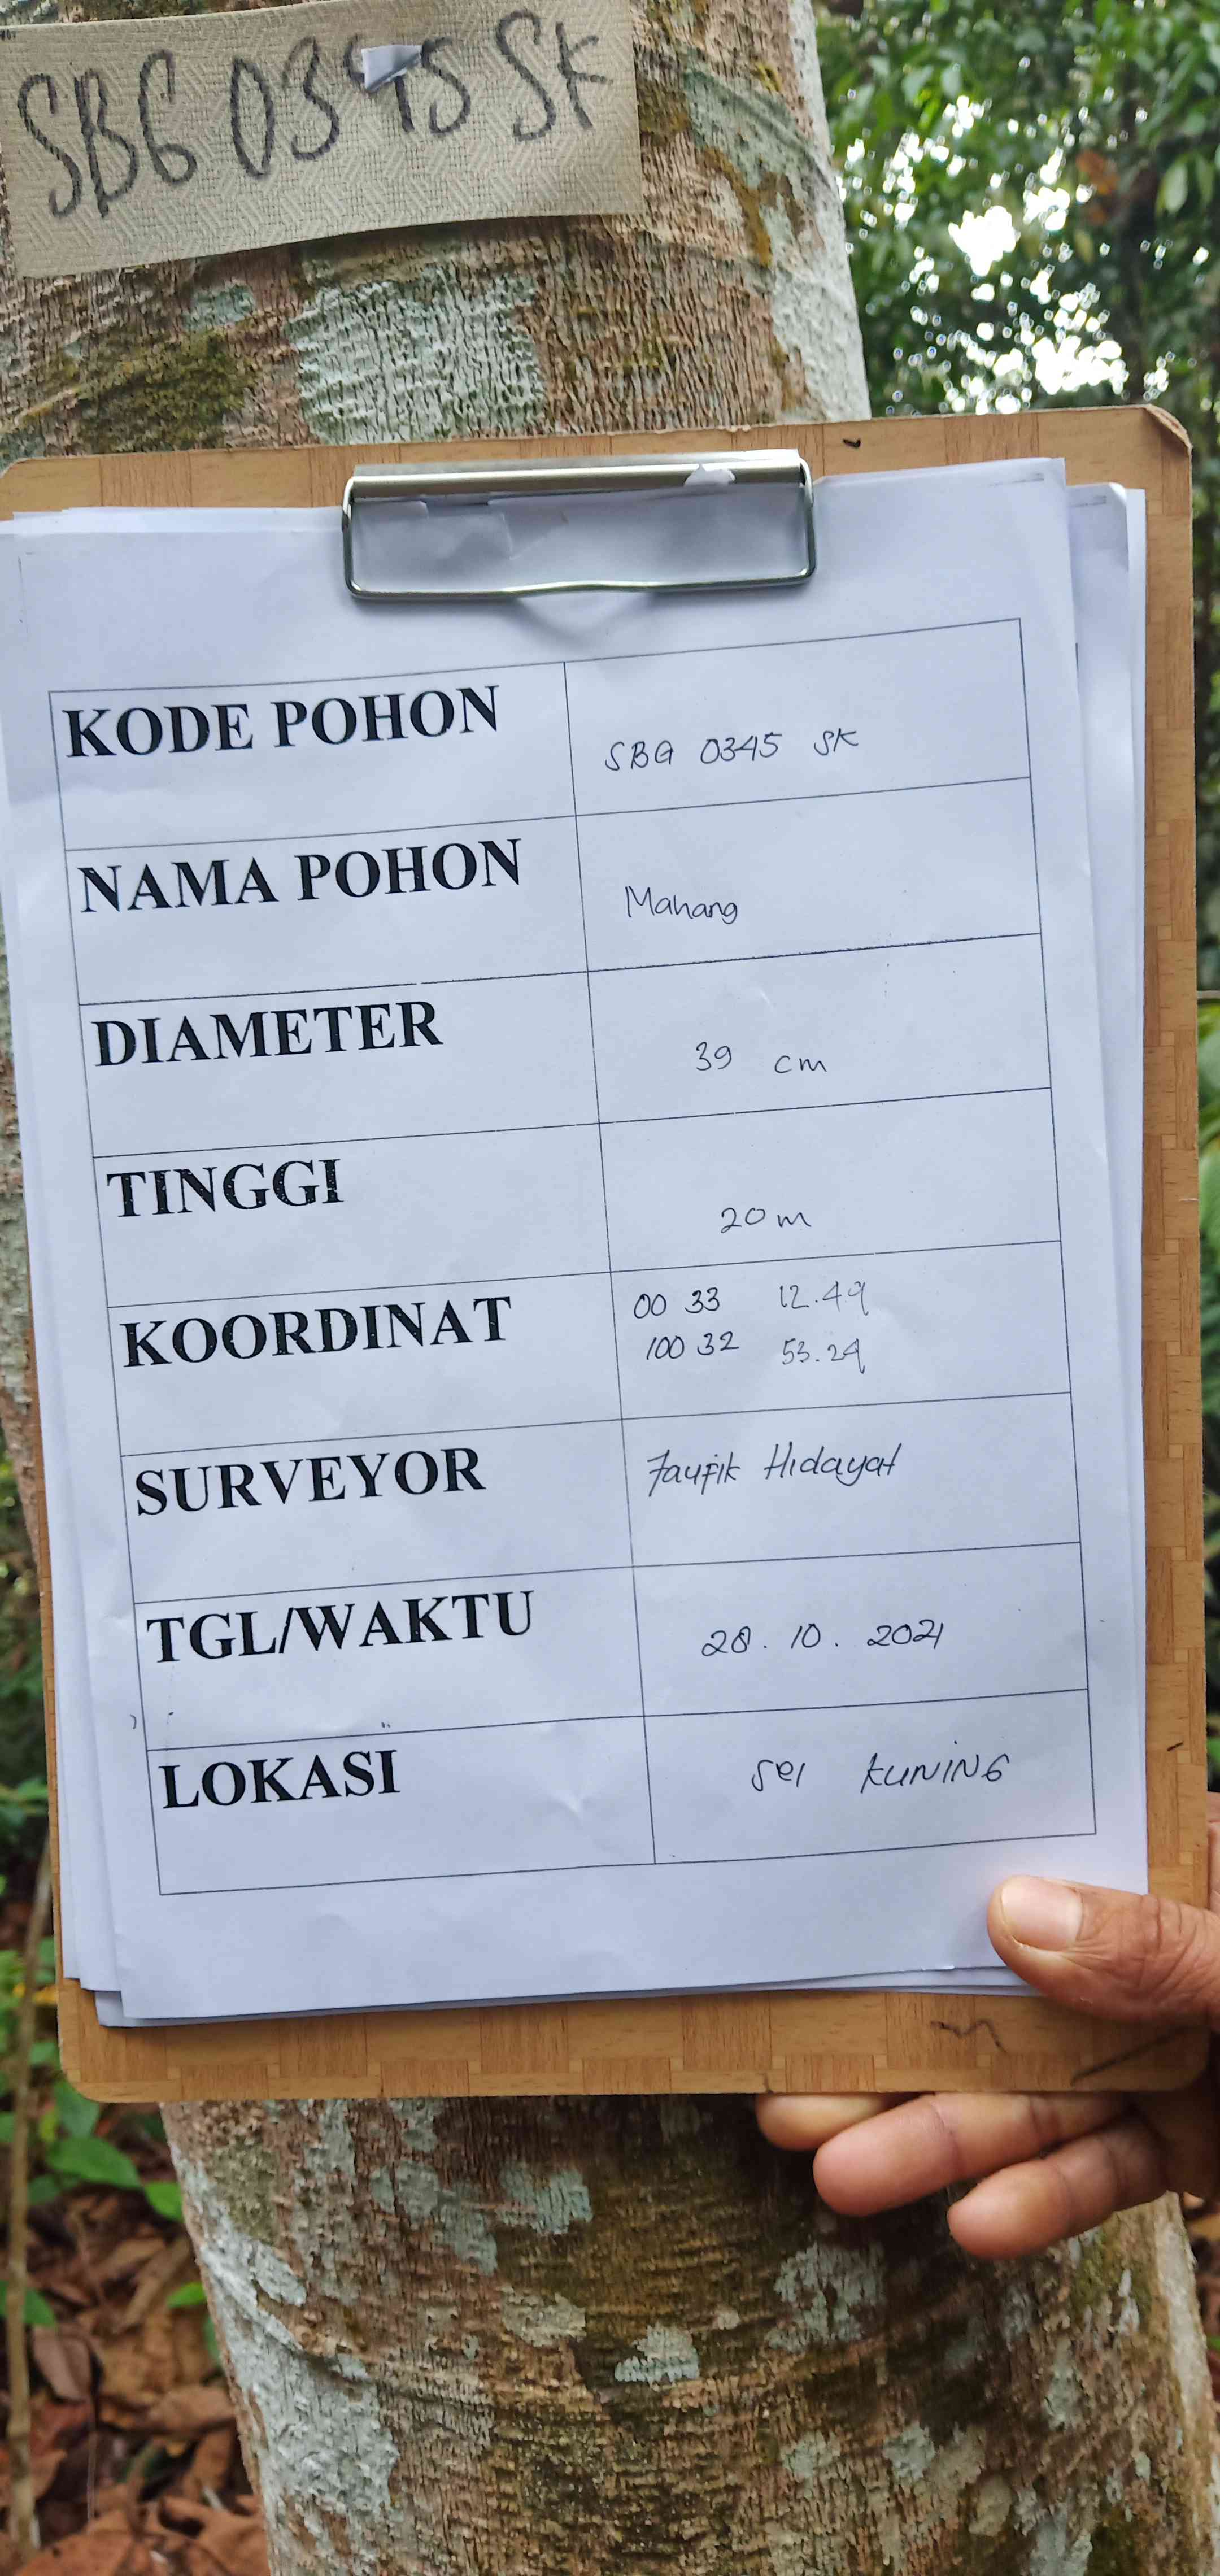 SBG 0345 SK
KODE POHON SBG 0345 SK
NAMA POHON Mahang
DIAMETER 39 cm
TINGGI 20 m
KOORDINAT 00 33 12.49
100 32 53.29
SURVEYOR Taufik Hidayat
TGL/WAKTU 28. 10. 2021
LOKASI Sei KUNING